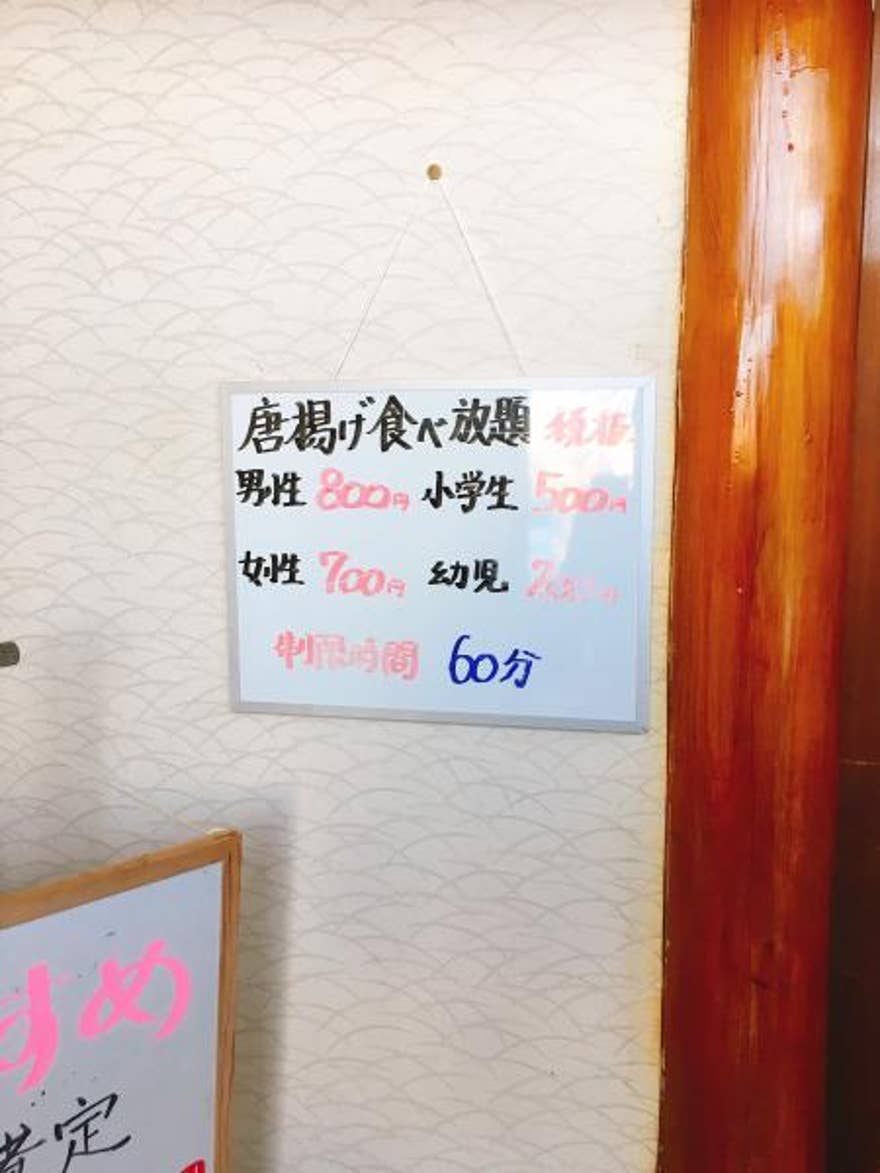 唐揚げ食べ放題 税抜
男性 800円 小学生 500円
女性 700円 幼児
制限時間 60分
すめ
定